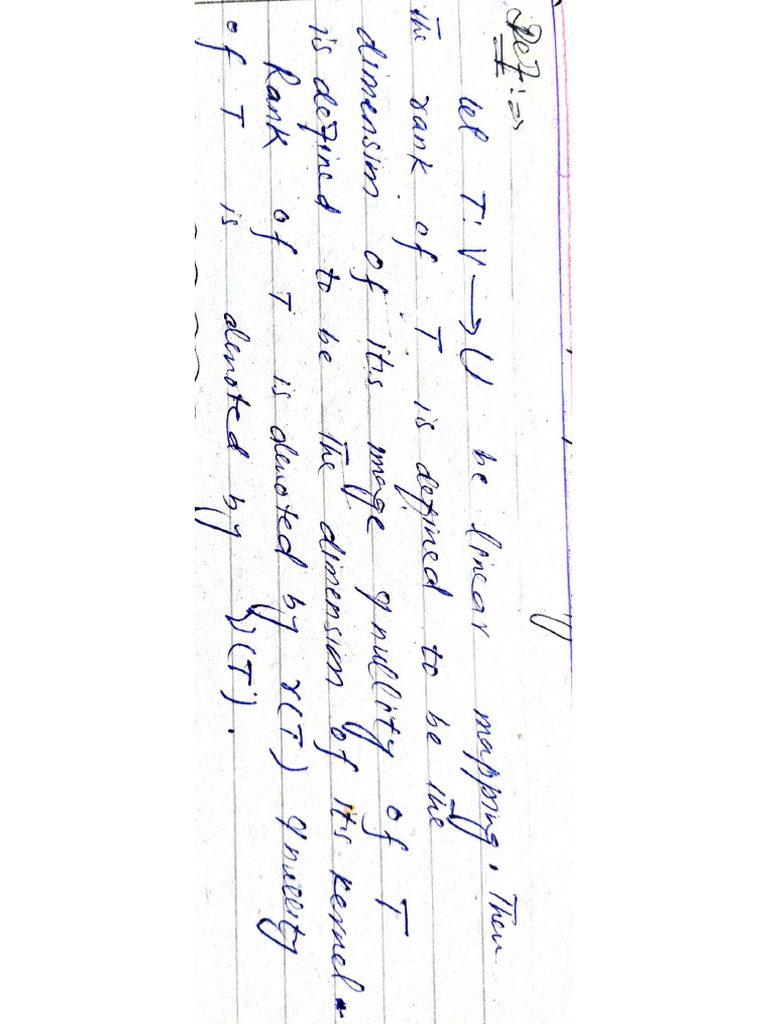 Def:→
let T: V → U be linear mapping. Then
the rank of T is defined to be the
dimension of its image & nullity of T
is defined to be the dimension of it's kernel.
Rank of T is denoted by r(T) & nullity
of T is denoted by ν(T).